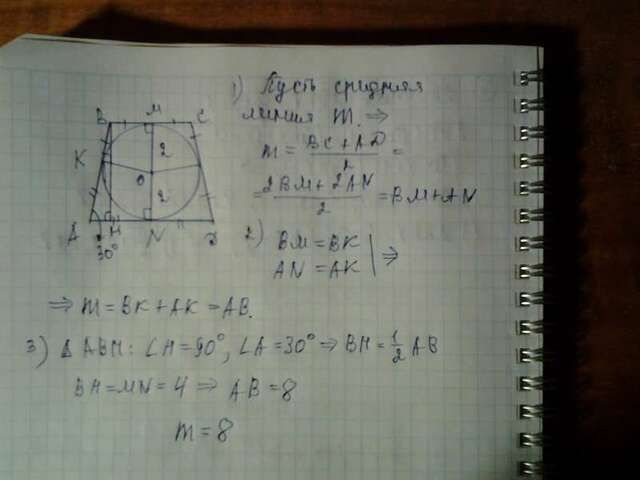 1) Пусть средняя
линия m. ⇒
m = (BC + AD)/2 =
= (2BM + 2AN)/2 = BM + AN
2) BM = BK | ⇒
AN = AK
⇒ m = BK + AK = AB.
3) Δ ABH: ∠H = 90°, ∠A = 30° ⇒ BH = 1/2 AB
BH = MN = 4 ⇒ AB = 8
m = 8
B M C
2
K
O
2
A H N D
30°